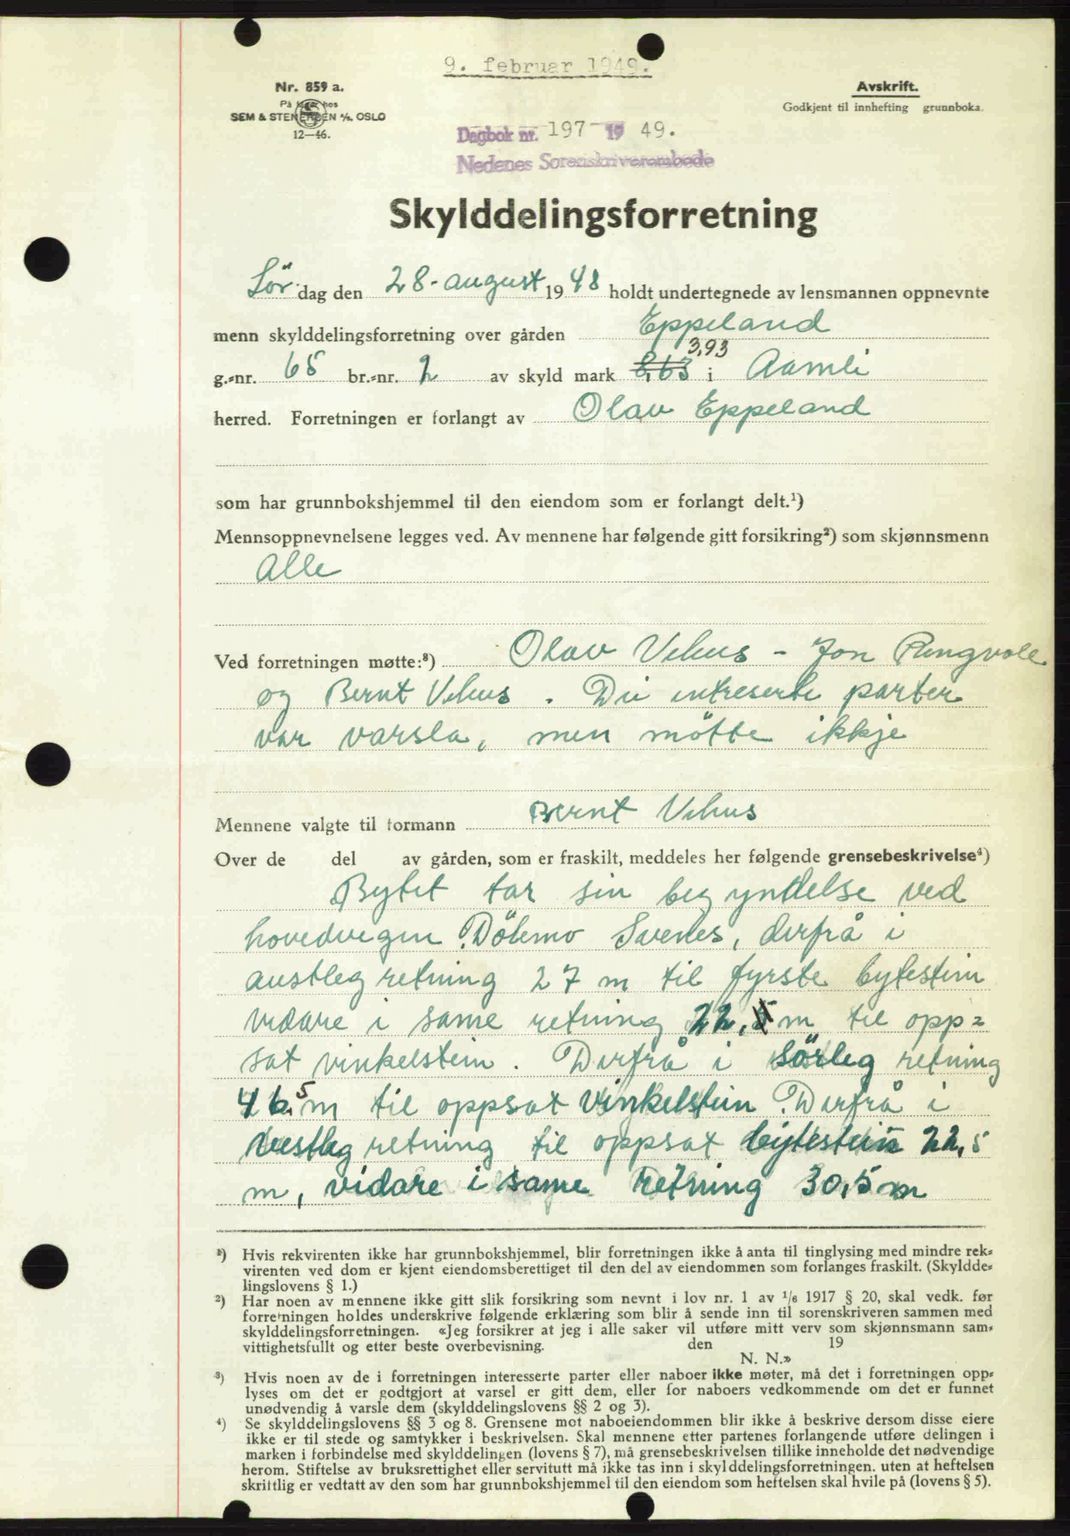 9. februar 1949.
Nr. 859 a.
På lager hos
SEM & STENERSEN A/S. OSLO
12—46.
Avskrift.
Godkjent til innhefting grunnboka.
Dagbok nr. 197 - 19 49.
Nedenes Sorenskriverembede
Skylddelingsforretning
Lör dag den 28. august 19 48 holdt undertegnede av lensmannen oppnevnte
menn skylddelingsforretning over gården Eppeland
g.-nr. 65 br.-nr. 2 av skyld mark 8,63 3,93 i Aamli
herred. Forretningen er forlangt av Olav Eppeland
som har grunnbokshjemmel til den eiendom som er forlangt delt.¹)
Mennsoppnevnelsene legges ved. Av mennene har følgende gitt forsikring²) som skjønnsmenn
Alle
Ved forretningen møtte:³) Olav Vehus - Jon Ringvole
og Bernt Vehus. Dei intreserte parter
var varsla, men mötte ikkje
Mennene valgte til formann Bernt Vehus
Over de del av gården, som er fraskilt, meddeles her følgende grensebeskrivelse⁴)
Bytet tar sin begyndelse ved
hovedvegen Dölemo Svenes, derfrå i
austleg retning 27 m til fyrste bytestein
vidare i same retning 22, m til opp=
sat vinkelstein. Derfrå i sörleg retning
46,5 m til oppsat vinkelstein. Derfrå i
vestleg retning til oppsat bytestein 22,5
m, vidare i same retning 30,5 m
¹) Hvis rekvirenten ikke har grunnbokshjemmel, blir forretningen ikke å anta til tinglysing med mindre rek-
virenten ved dom er kjent eiendomsberettiget til den del av eiendommen som forlanges fraskilt. (Skyldde-
lingslovens § 1.)
²) Har noen av mennene ikke gitt slik forsikring som nevnt i lov nr. 1 av 1/6 1917 § 20, skal vedk. før
forretningen holdes underskrive følgende erklæring som blir å sende inn til sorenskriveren sammen med
skylddelingsforretningen. «Jeg forsikrer at jeg i alle saker vil utføre mitt verv som skjønnsmann sam-
vittighetsfullt og etter beste overbevisning. den 19
N. N.»
³) Hvis noen av de i forretningen interesserte parter eller naboer ikke møter, må det i forretningen opp-
lyses om det er godtgjort at varsel er gitt dem, eller for naboers vedkommende om det er funnet
unødvendig å varsle dem (skylddelingslovens §§ 2 og 3).
⁴) Se skylddelingslovens §§ 3 og 8. Grensene mot naboeiendommen blir ikke å beskrive dersom disse eiere
ikke er til stede og samtykker i beskrivelsen. Skal mennene etter partenes forlangende utføre delingen i
marken i forbindelse med skylddelingen (lovens § 7), må grensebeskrivelsen tillike inneholde det nødvendige
herom. Stiftelse av bruksrettighet eller servitutt må ikke tas inn i skylddelingsforretningen. uten at heftelsen
skriftlig er vedtatt av den som har grunnbokshjemmel til den eiendom som heftelsen skal hvile på (lovens § 5).